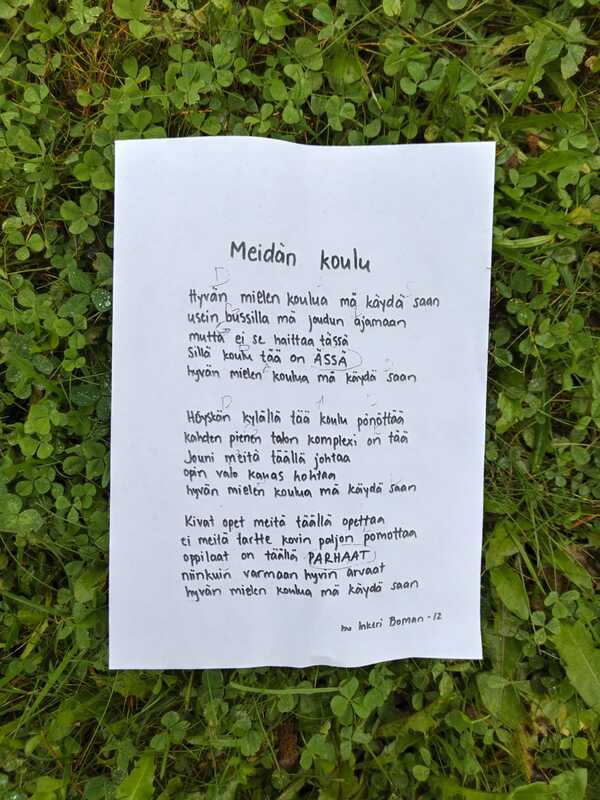 Meidän koulu
Hyvän mielen koulua mä käydä saan
usein bussilla mä joudun ajamaan
mutta ei se haittaa tässä
Sillä koulu tää on ÄSSÄ
hyvän mielen koulua mä käydä saan
Höyskön kylällä tää koulu pönöttää
kahden pienen talon komplexi on tää
Jouni meitä täällä johtaa
opin valo kauas hohtaa
hyvän mielen koulua mä käydä saan
Kivat opet meitä täällä opettaa
ei meitä tartte kovin paljon pomottaa
oppilaat on täällä PARHAAT
niinkuin varmaan hyvin arvaat
hyvän mielen koulua mä käydä saan
Inkeri Boman -12